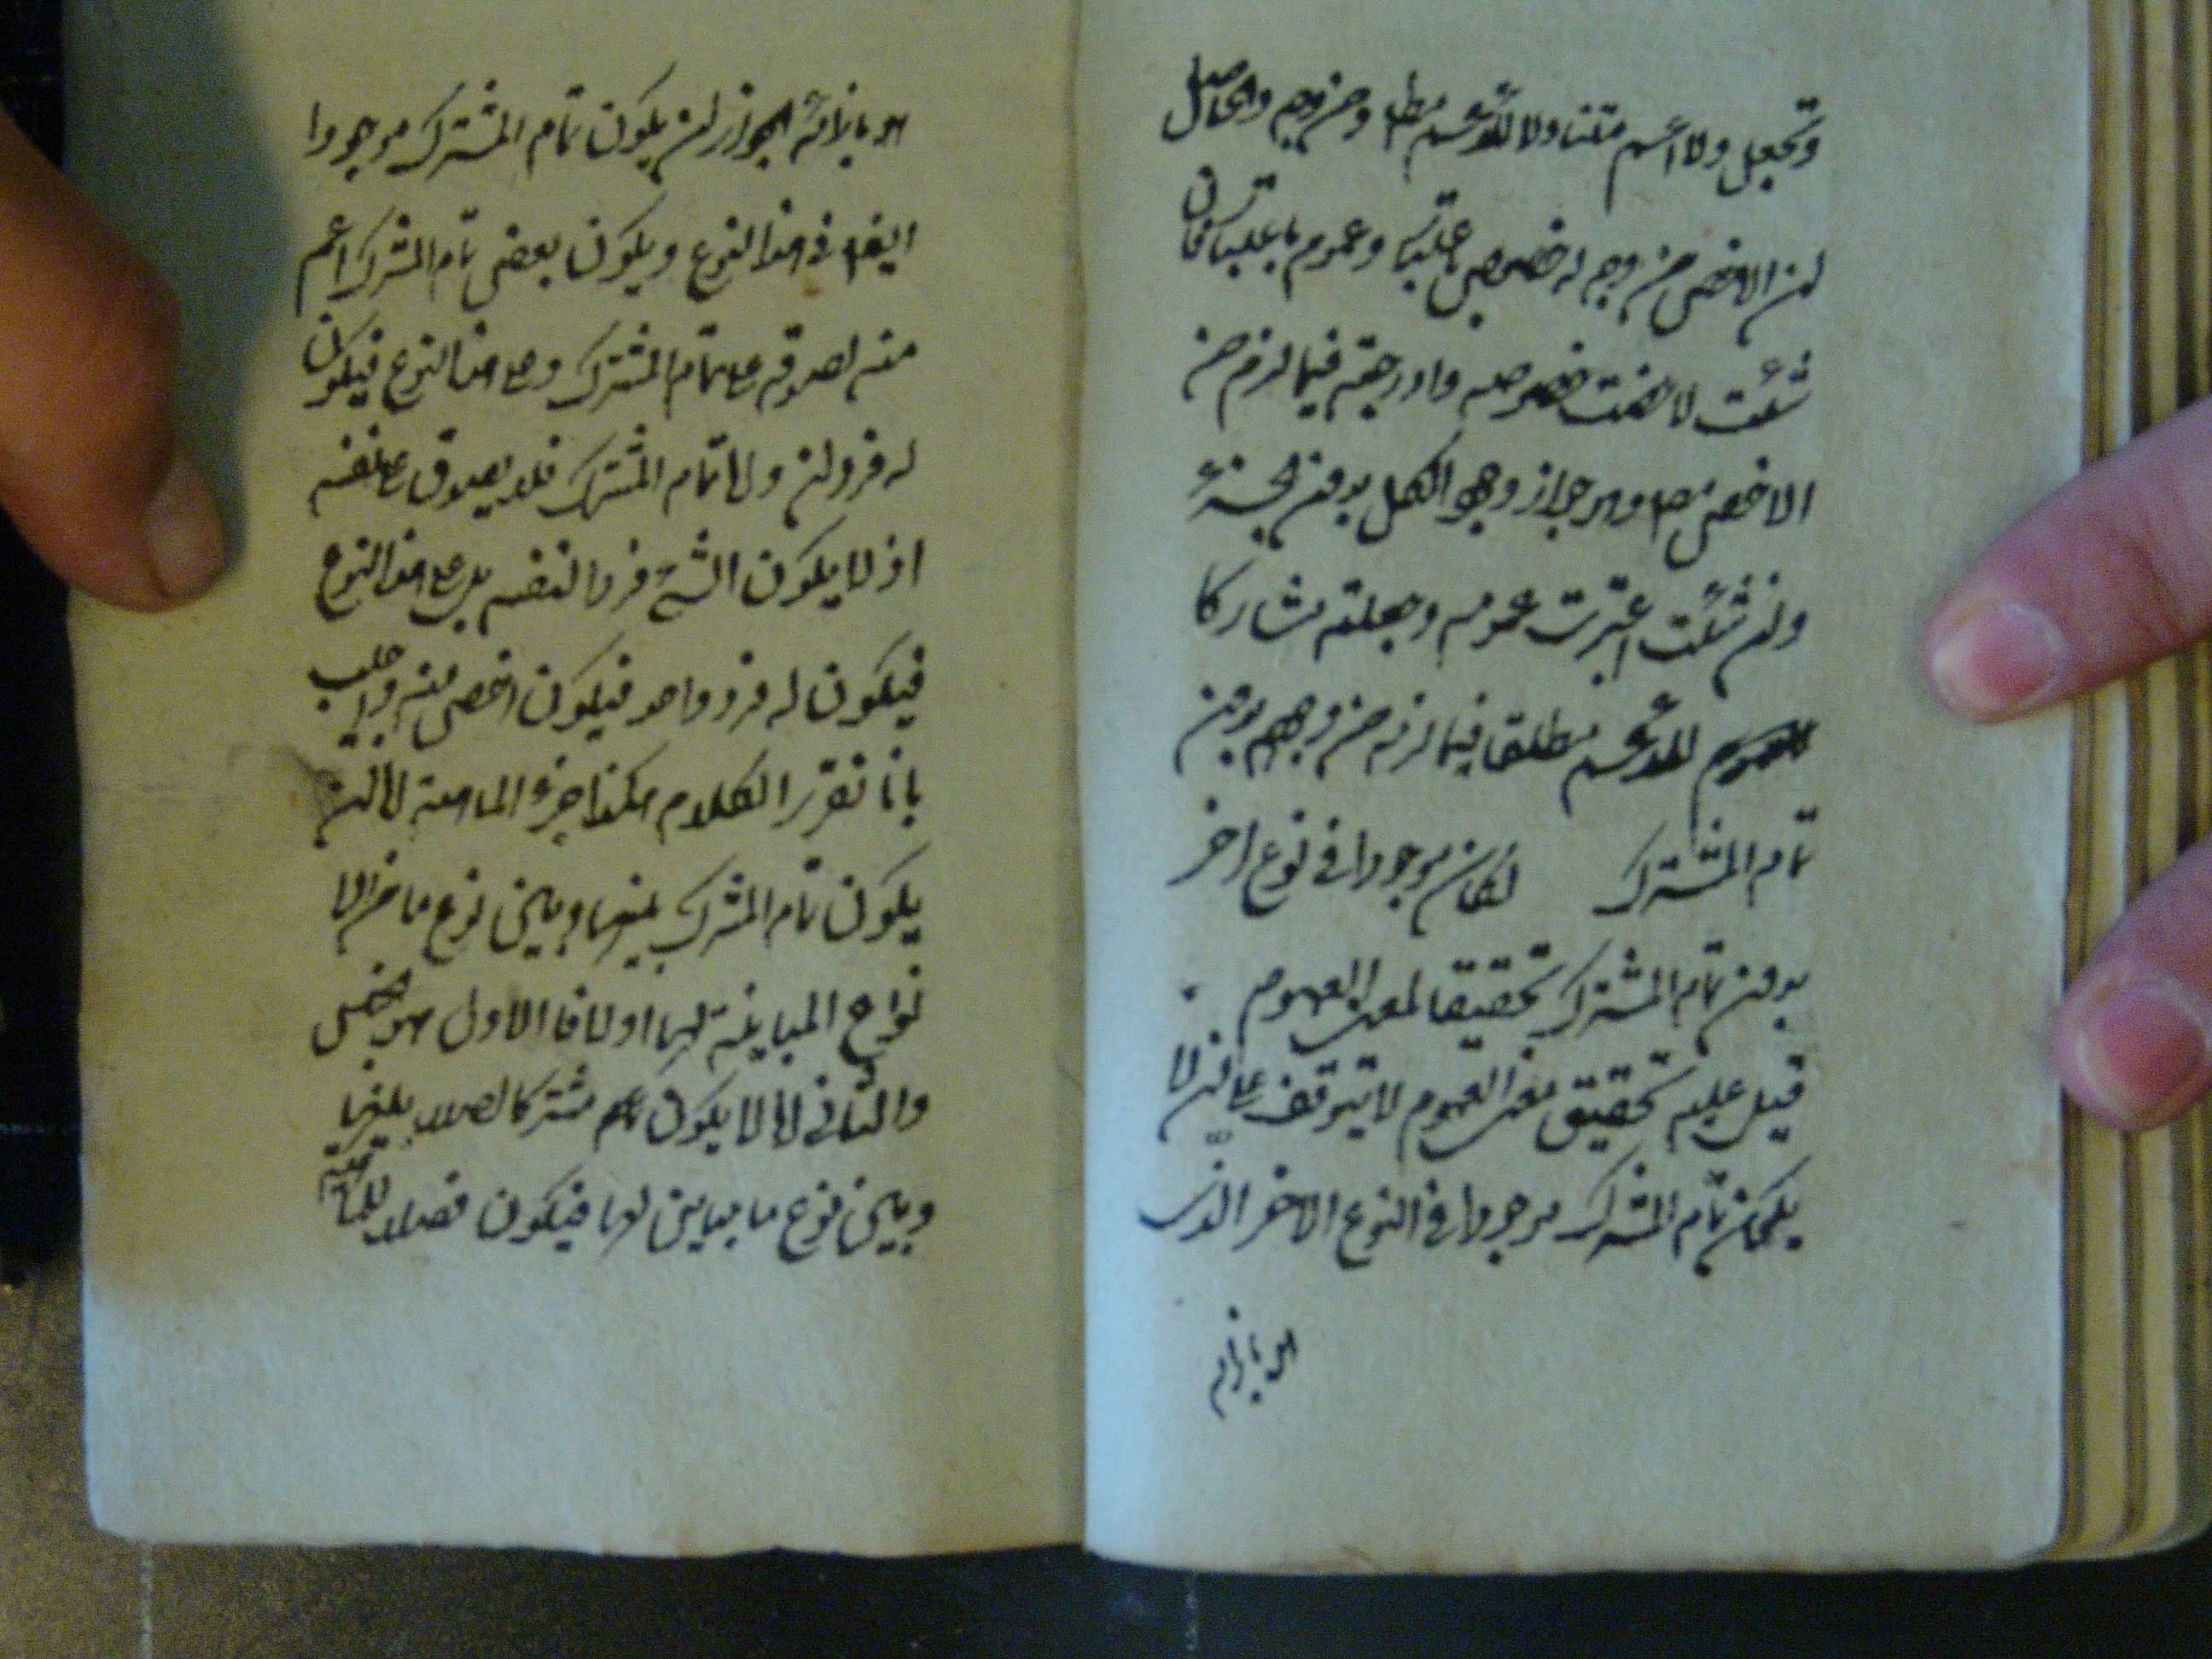 وتجعل ولا اعم متناولا للاعم مط ومن وجه والحاصل
ان الاخص من وجه له خصوص باعتبار وعموم باعتبار فان
شئت لاحظت خصوصه وادرجته فيما لزم من
الاخص مط وهو جواز وجود الكل بدون الجزء
وان شئت اعتبرت عمومه وجعلته مشاركا
للاعم مطلقا فيما لزم من وجوده بدون
تمام المشترك لكان موجودا في نوع اخر
بدون تمام المشترك تحقيقا لمعنى العموم
قيل عليه تحقيق معنى العموم لا يتوقف على ان لا
يكون تمام المشترك موجودا في النوع الاخر الذي
هو بازائه
هو بازائه لجواز ان يكون تمام المشترك موجودا
ايضا في هذا النوع ويكون بعض تمام المشترك اعم
منه لصدقه على تمام المشترك وعلى هذا النوع فيكون
له فردان واما تمام المشترك فلا يصدق على نفسه
اذ لا يكون الشئ فردا لنفسه بل على هذا النوع
فيكون له فرد واحد فيكون اخص منه واجيب
بانا نقرر الكلام هكذا جزء الماهية اما ان
يكون تمام المشترك بينها وبين نوع ما من الا
نواع المباينة لها اولا فالاول هو الجنس
والثاني اما لا يكون مشتركا اصلا بينها
وبين نوع ما مباين لها فيكون فصلا للماهية